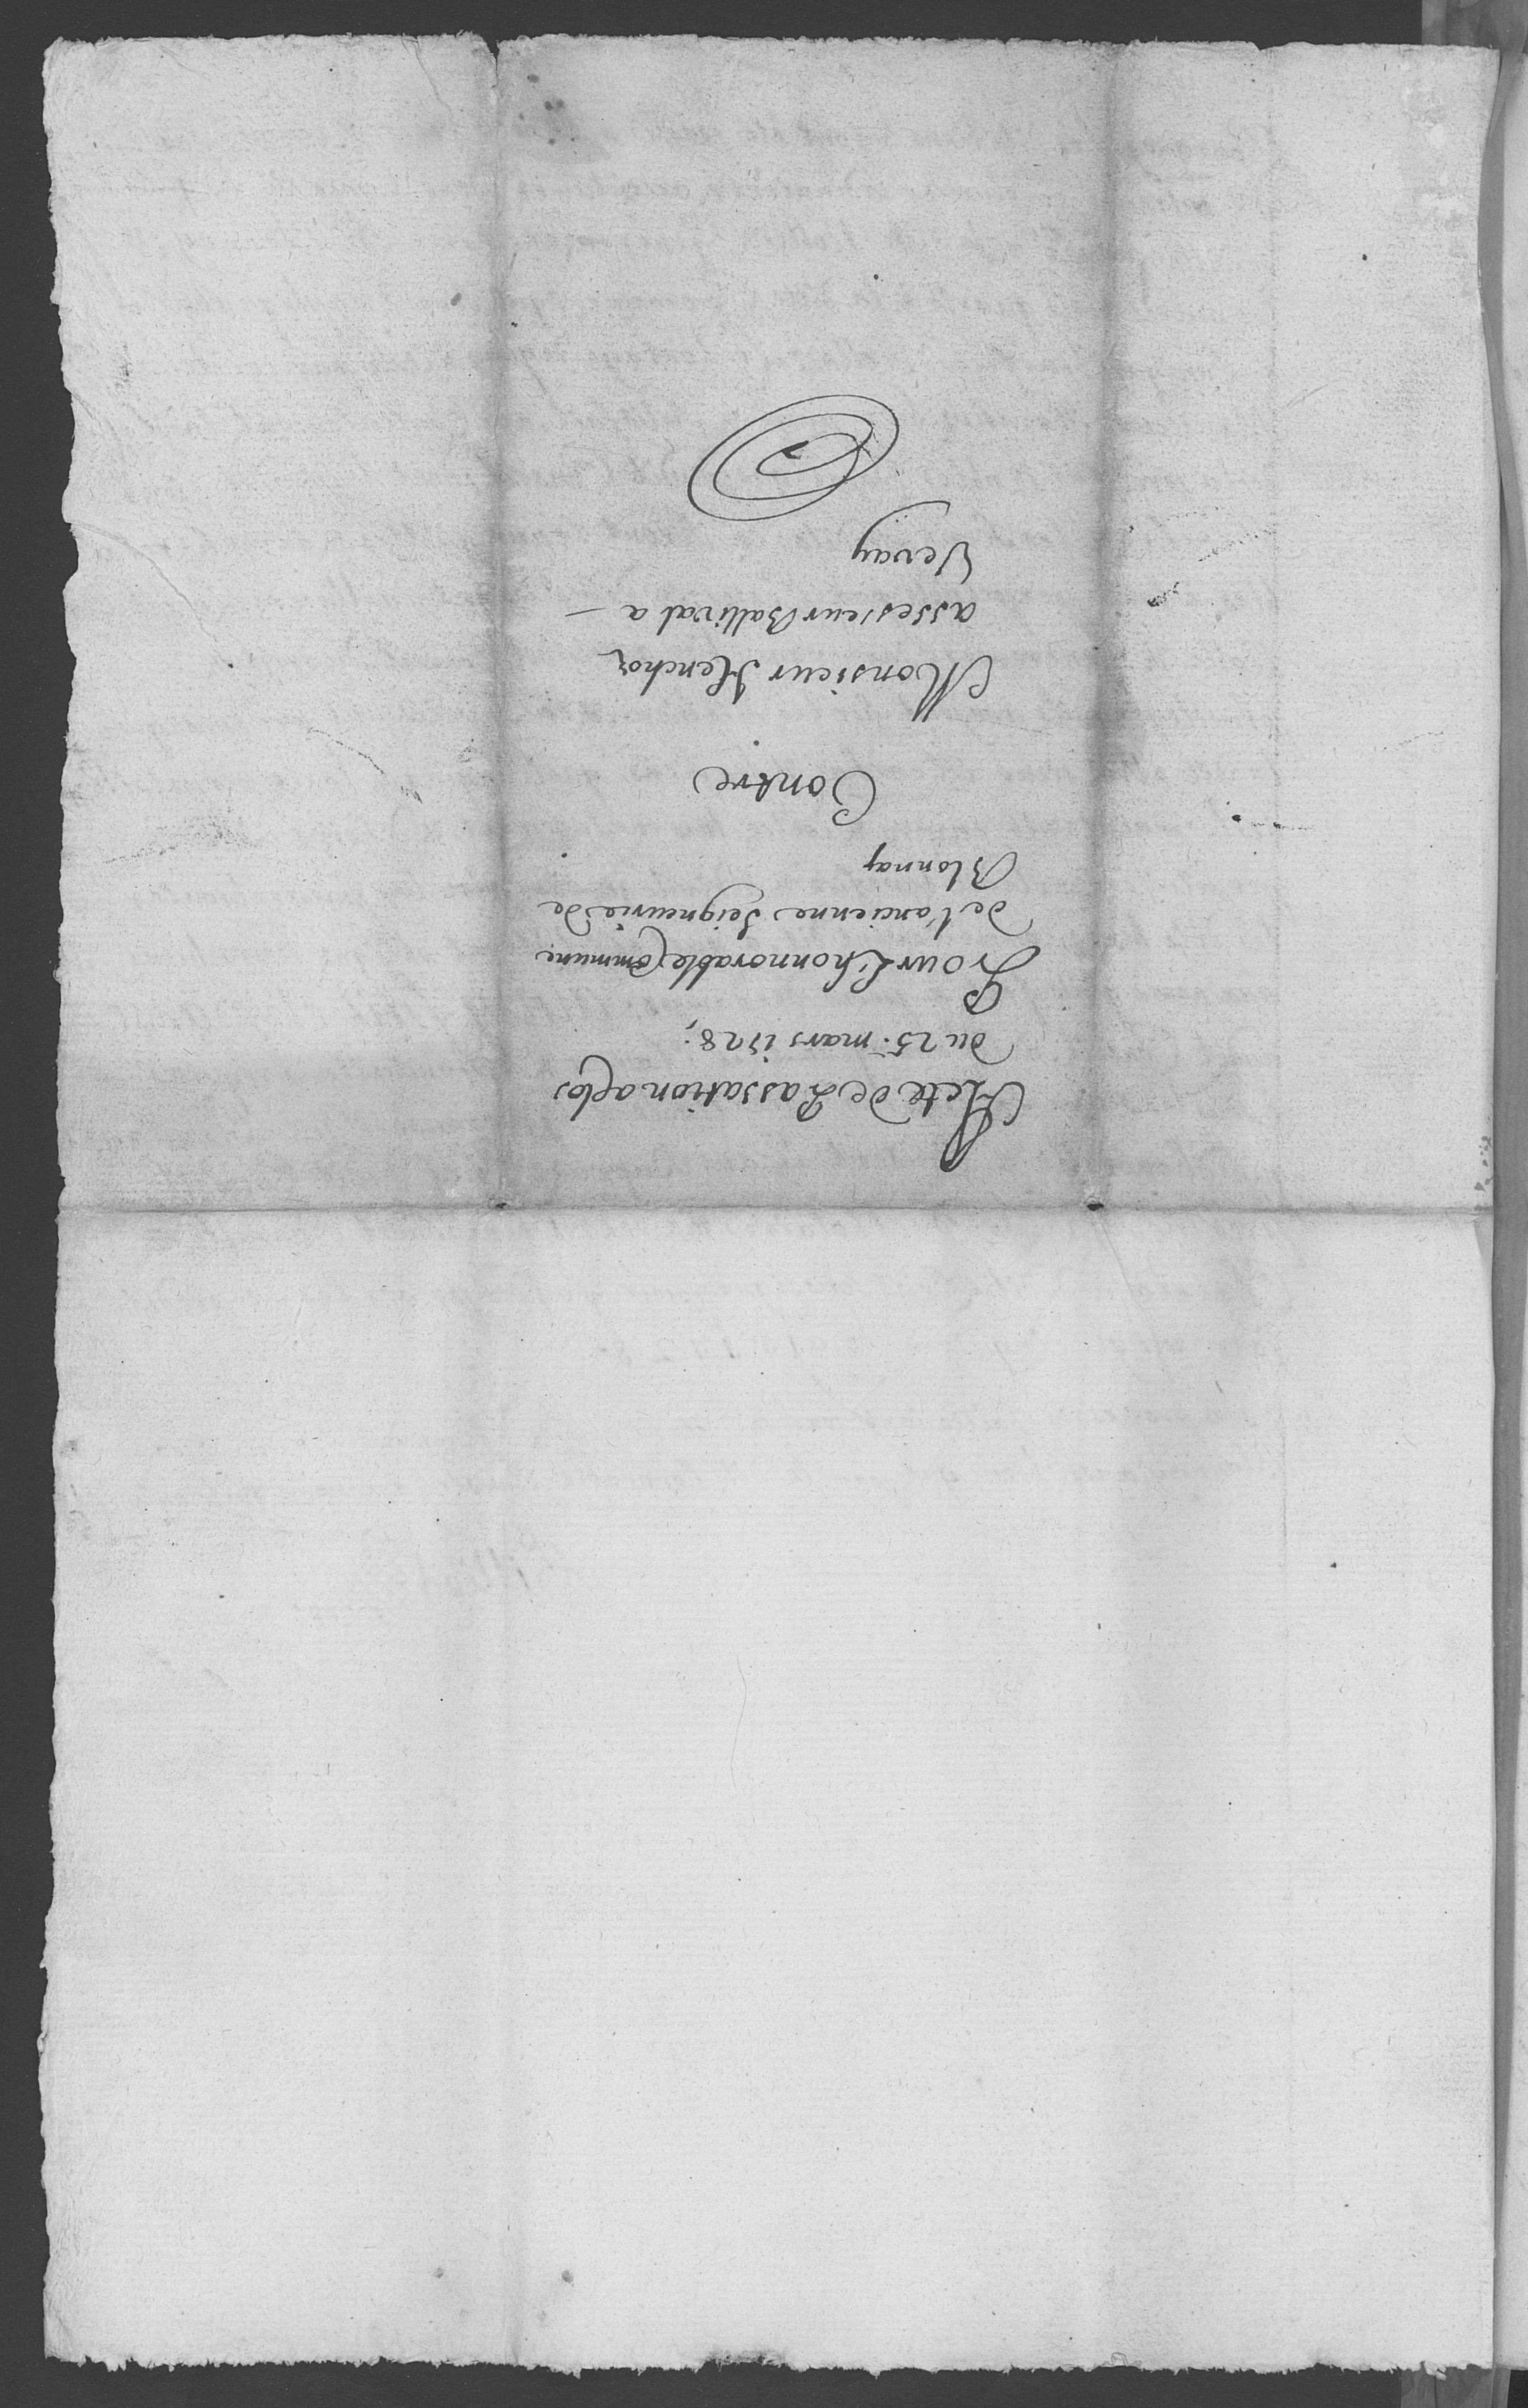 Acte de Passation a Clos
du 25.e mars 1728;
Pour L'honnorable Commune
de l'ancienne Seigneurie de
Blonnay
Contre
Monsieur Henchoz
assesseur Ballival a —
Vevay